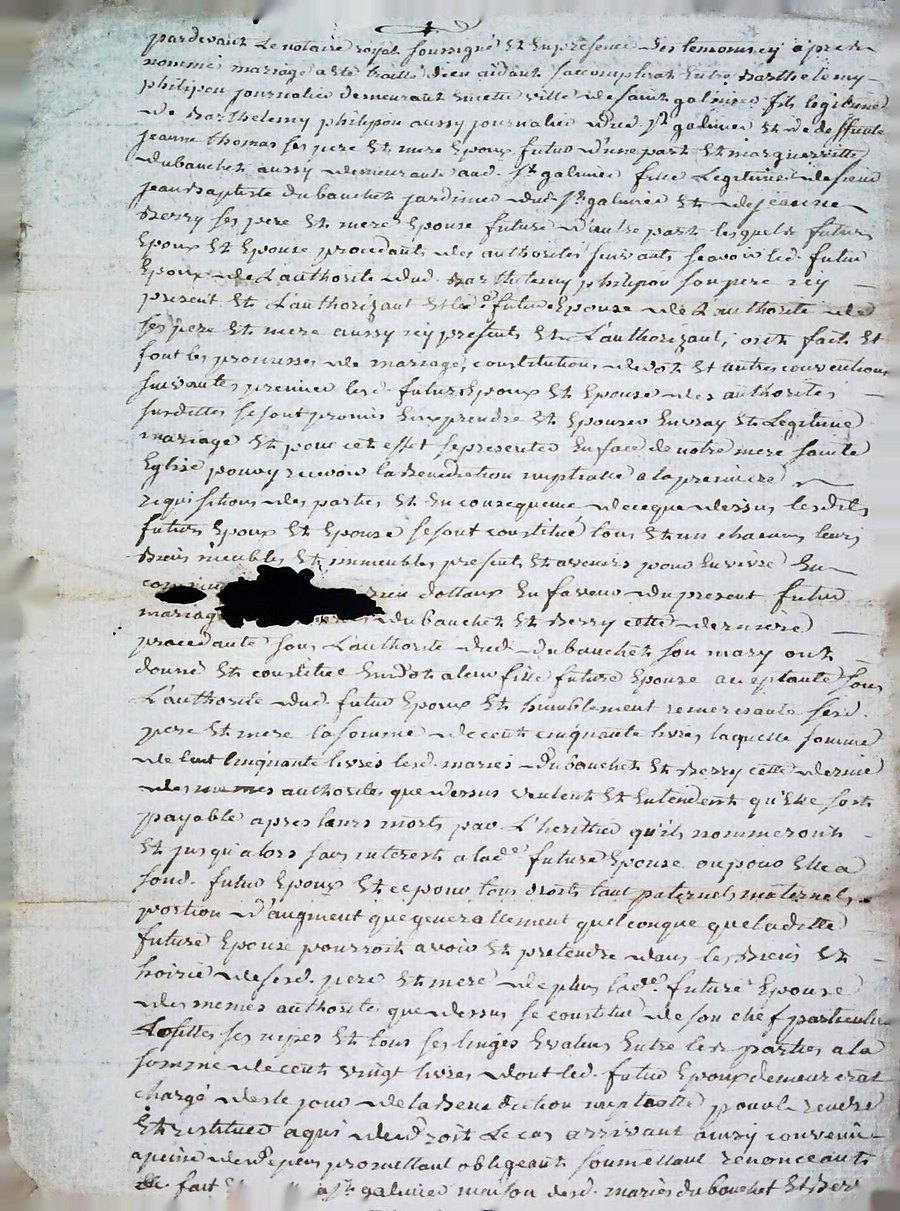 pardevant Le notaire royal soussigné Et En presence des temoins cy apres
nommé mariage a eté traitté dieu aidant saccomplirat Entre Barthelemy
philipon journalier demeurant En cette ville de saint galmier fils legitime
de Barthelemy philipon aussy journalier dud. st galmier Et de deffunte
jeanne thomas ses pere Et mere Epoux futur d'une part Et margueritte
dubanchet aussy demeurante aud. st galmier fille Legitime de sieur
jean Baptiste dubanchet jardinier dud. st galmier Et de jeanne
Berry ses pere Et mere Epouse future d'autre part lesquels futurs
Epoux Et Epouse procedants des authorités suivants scavoir led. futur
Epoux de L'authorité dud. Barthelemy philipon son pere icy
present Et L'authorizant Et lade future Epouse de L'authorité de
ses pere Et mere aussy icy presents Et L'authorizant, ont fait Et
font les promesses de mariage, constitutions de dot Et autres conventions
suivantes premier lesd. futurs Epoux Et Epouse des authorités
susdittes se sont promis Em prendre Et Epouser En vray Et Legitime
mariage Et pour cet effet se presenter En face de notre mere sainte
Eglise pour y recevoir la Benediction nuptialle a la premiere
requisition des parties Et En consequence de ce que dessus lesdits
futurs Epoux Et Epouse se sont constitué tous Et un chacuns leurs
Biens meubles Et immeubles presents Et avenirs pour En vivre En
dottaux En faveur du present futur
mariage dubanchet Et Berry cette derniere
procedante sous L'authorité dud. dubanchet son mary ont
donné Et constitué En dot a leur fille future Epouse acceptante sous
L'authorité dud. futur Epoux Et humblement remerciante sesd.
pere Et mere la somme de cent cinquante livres laquelle somme
de Cent Cinquante livres lesd. mariés dubanchet Et Berry cette derniere
des mêmes authorités que dessus veulent Et Entendent qu'Elle soit
payable apres leurs morts par L'heritier qu'ils nommeront
Et jusqu'alors sans interest a lade future Epouse ou pour Elle a
sond. futur Epoux Et ce pour tous droits tant paternels maternels,
portion d'augment que generallement quelconque que laditte
future Epouse pourroit avoir Et pretendre dans les Biens Et
hoirie de sesd. pere Et mere de plus lade future Epouse
des memes authorités que dessus se constitue de son chef particulier
ses nipes Et tous ses linges Evalués Entre lesd. parties a la
somme de cent vingt livres dont led. futur Epoux demeurerat
chargé des le jour de la Benediction nuptialle pour la rendre
Et restituer a qui de droit Le cas arrivant ainsy convenu
a peine de depens promettant obligeant soumettant renonceants
&c. fait a st galmier maison desd. mariés dubanchet Et Berry